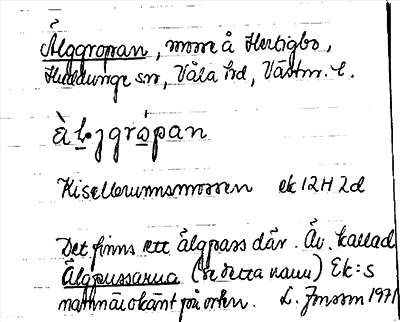 Älggropan, mosse å Hertigbo,
Huddunge sn, Våla hd, Västm. l.
àl̥jgrópan
Kiselbrunnsmossen ek 12H 2d
Det finns ett älgpass där. Äv. kallad
Älgpussarna (se detta namn) Ek:s
namn är okänt på orten. L. Jonsson 1971